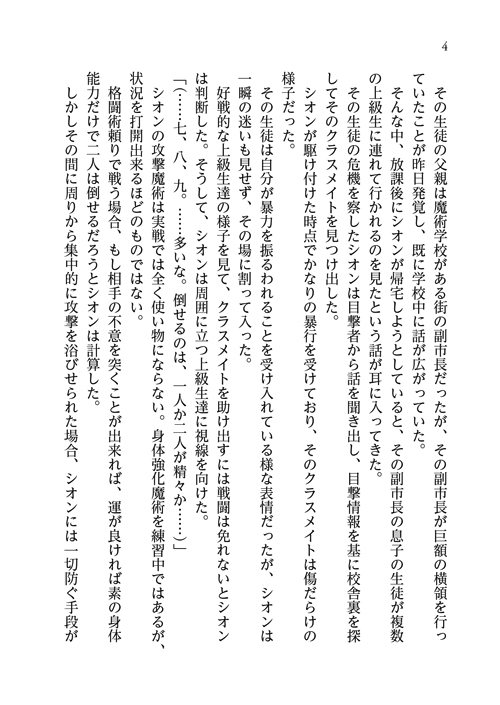 4
　その生徒の父親は魔術学校がある街の副市長だったが、その副市長が巨額の横領を行っ
ていたことが昨日発覚し、既に学校中に話が広がっていた。
　そんな中、放課後にシオンが帰宅しようとしていると、その副市長の息子の生徒が複数
の上級生に連れて行かれるのを見たという話が耳に入ってきた。
　その生徒の危機を察したシオンは目撃者から話を聞き出し、目撃情報を基に校舎裏を探
してそのクラスメイトを見つけ出した。
　シオンが駆け付けた時点でかなりの暴行を受けており、そのクラスメイトは傷だらけの
様子だった。
　その生徒は自分が暴力を振るわれることを受け入れている様な表情だったが、シオンは
一瞬の迷いも見せず、その場に割って入った。
　好戦的な上級生達の様子を見て、クラスメイトを助け出すには戦闘は免れないとシオン
は判断した。そうして、シオンは周囲に立つ上級生達に視線を向けた。
「（……七、八、九。……多いな。倒せるのは、一人か二人が精々か……）」
　シオンの攻撃魔術は実戦では全く使い物にならない。身体強化魔術を練習中ではあるが、
状況を打開出来るほどのものではない。
　格闘術頼りで戦う場合、もし相手の不意を突くことが出来れば、運が良ければ素の身体
能力だけで二人は倒せるだろうとシオンは計算した。
　しかしその間に周りから集中的に攻撃を浴びせられた場合、シオンには一切防ぐ手段が